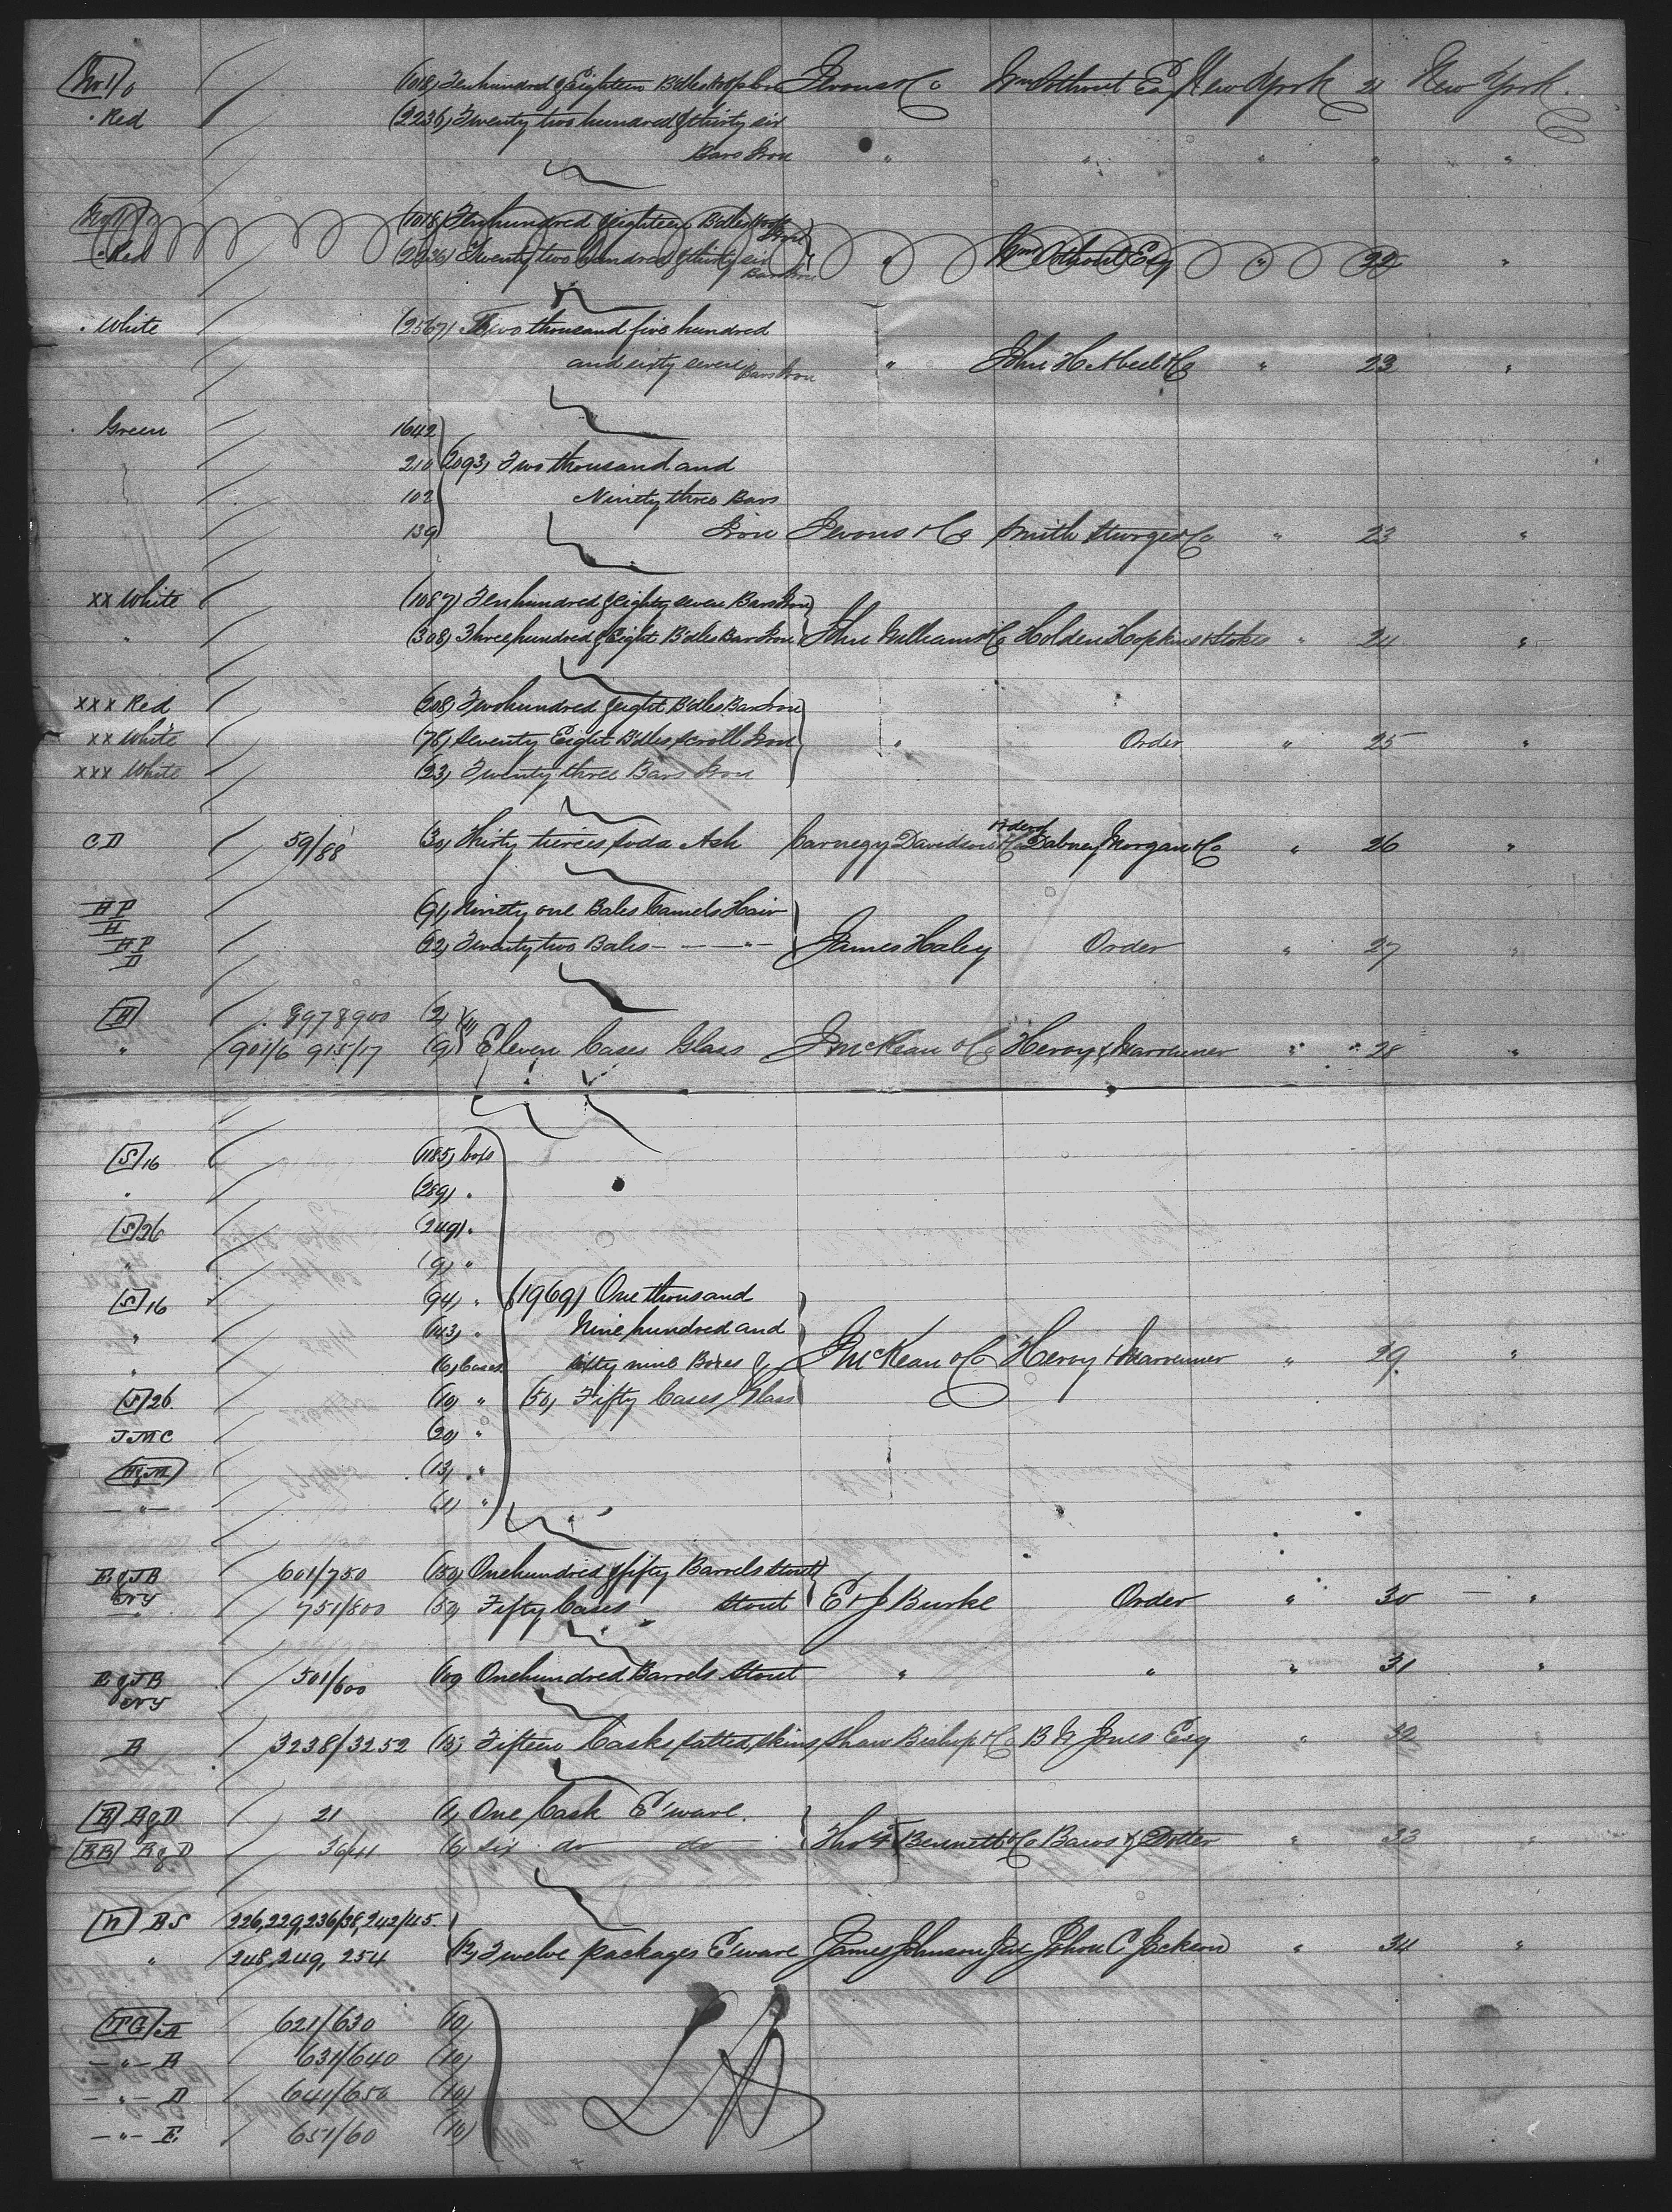 No 1 / (1018) Ten hundred & Eighteen Bdles Hoop Iron Jevons & Co Wm Oothout Esq New York 21 New York.
. Red / (2236) Twenty two hundred & thirty six
Bars Iron " " " " "
(1018) Ten hundred & eighteen Bdles Hoop
Iron
Red (2236) Twenty two hundred & thirty six " Wm Oothout Esq " 22 "
Bars Iron
. White / (2567) Two thousand five hundred
and sixty seven Bars Iron " John H Abeel & Co " 23 "
. Green / 1642
210 (2093) Two thousand and
102 Ninety three Bars
139 Iron Jevons & Co Smith Sturges & Co " 23 "
XX White / (1087) Ten hundred & eighty seven Bars Iron
" / (308) Three hundred & Eight Bdles Bar Iron John Williams & Co Holden Hopkins & Stokes " 24 "
XXX Red / (208) Two hundred & eight Bdles Bar Iron
XX White / (78) Seventy Eight Bdles scroll Iron " Order " 25 "
XXX White / (23) Twenty three Bars Iron
C D / 59/88 (30) Thirty tierces Soda Ash Carnegy Davidson & Co Order of Dabney Morgan & Co " 26 "
H P
H / (91) Ninety one Bales Camels Hair
H P
D / (22) Twenty two Bales - - " - James Haley Order " 27 "
H / 897 8900 (2) (11)
" / 901/6 915/17 (9) Eleven Cases Glass J McKean & Co Heroy & Marrenner " 28 "
S 16 / (1185) boxs
" / (289) "
S 26 / (249) "
" / (9) "
S 16 / (94) " (1969) One thousand
" / (143) " Nine hundred and
" / (6) Cases sixty nine Boxes & J McKean & Co Heroy & Marrenner " 29 "
S 26 / (10) " (50) Fifty Cases Glass
J M C / (20) "
H & M / (13) "
— " — / (1) "
E & J B / 601/750 (150) One hundred & fifty Barrels Stout
N Y / 751/800 (50) Fifty Cases Stout E & J Burke Order " 30 — "
E & J B / 501/600 (100) One hundred Barrels Stout " " " 31 "
N Y
B / 3238/3252 (15) Fifteen Casks salted skins Shaw Bishop & Co B G Jones Esq " 32 "
B B & D / 21 (1) One Cask E'ware
BB B & D / 36/41 (6) six do do Thos F Bennett & Co Bawo & Dotter " 33 "
n BS / 226,229,236/38,242/45.
" / 248,249, 254 (12) Twelve packages E'ware James Johnson John C Jackson " 34 "
TG A / 621/630 (10)
— " — B / 631/640 (10)
— " — D / 641/650 (10)
— " — E / 651/60 (10)